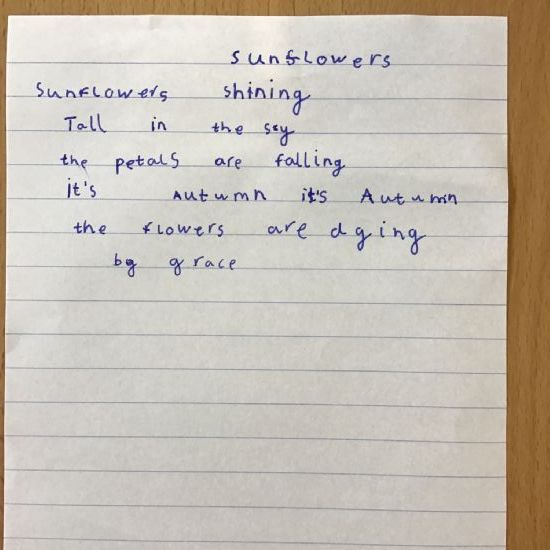 sunflowers
Sunflowers shining
Tall in the sky
the petals are falling
it's Autumn it's Autumn
the flowers are dying
by grace